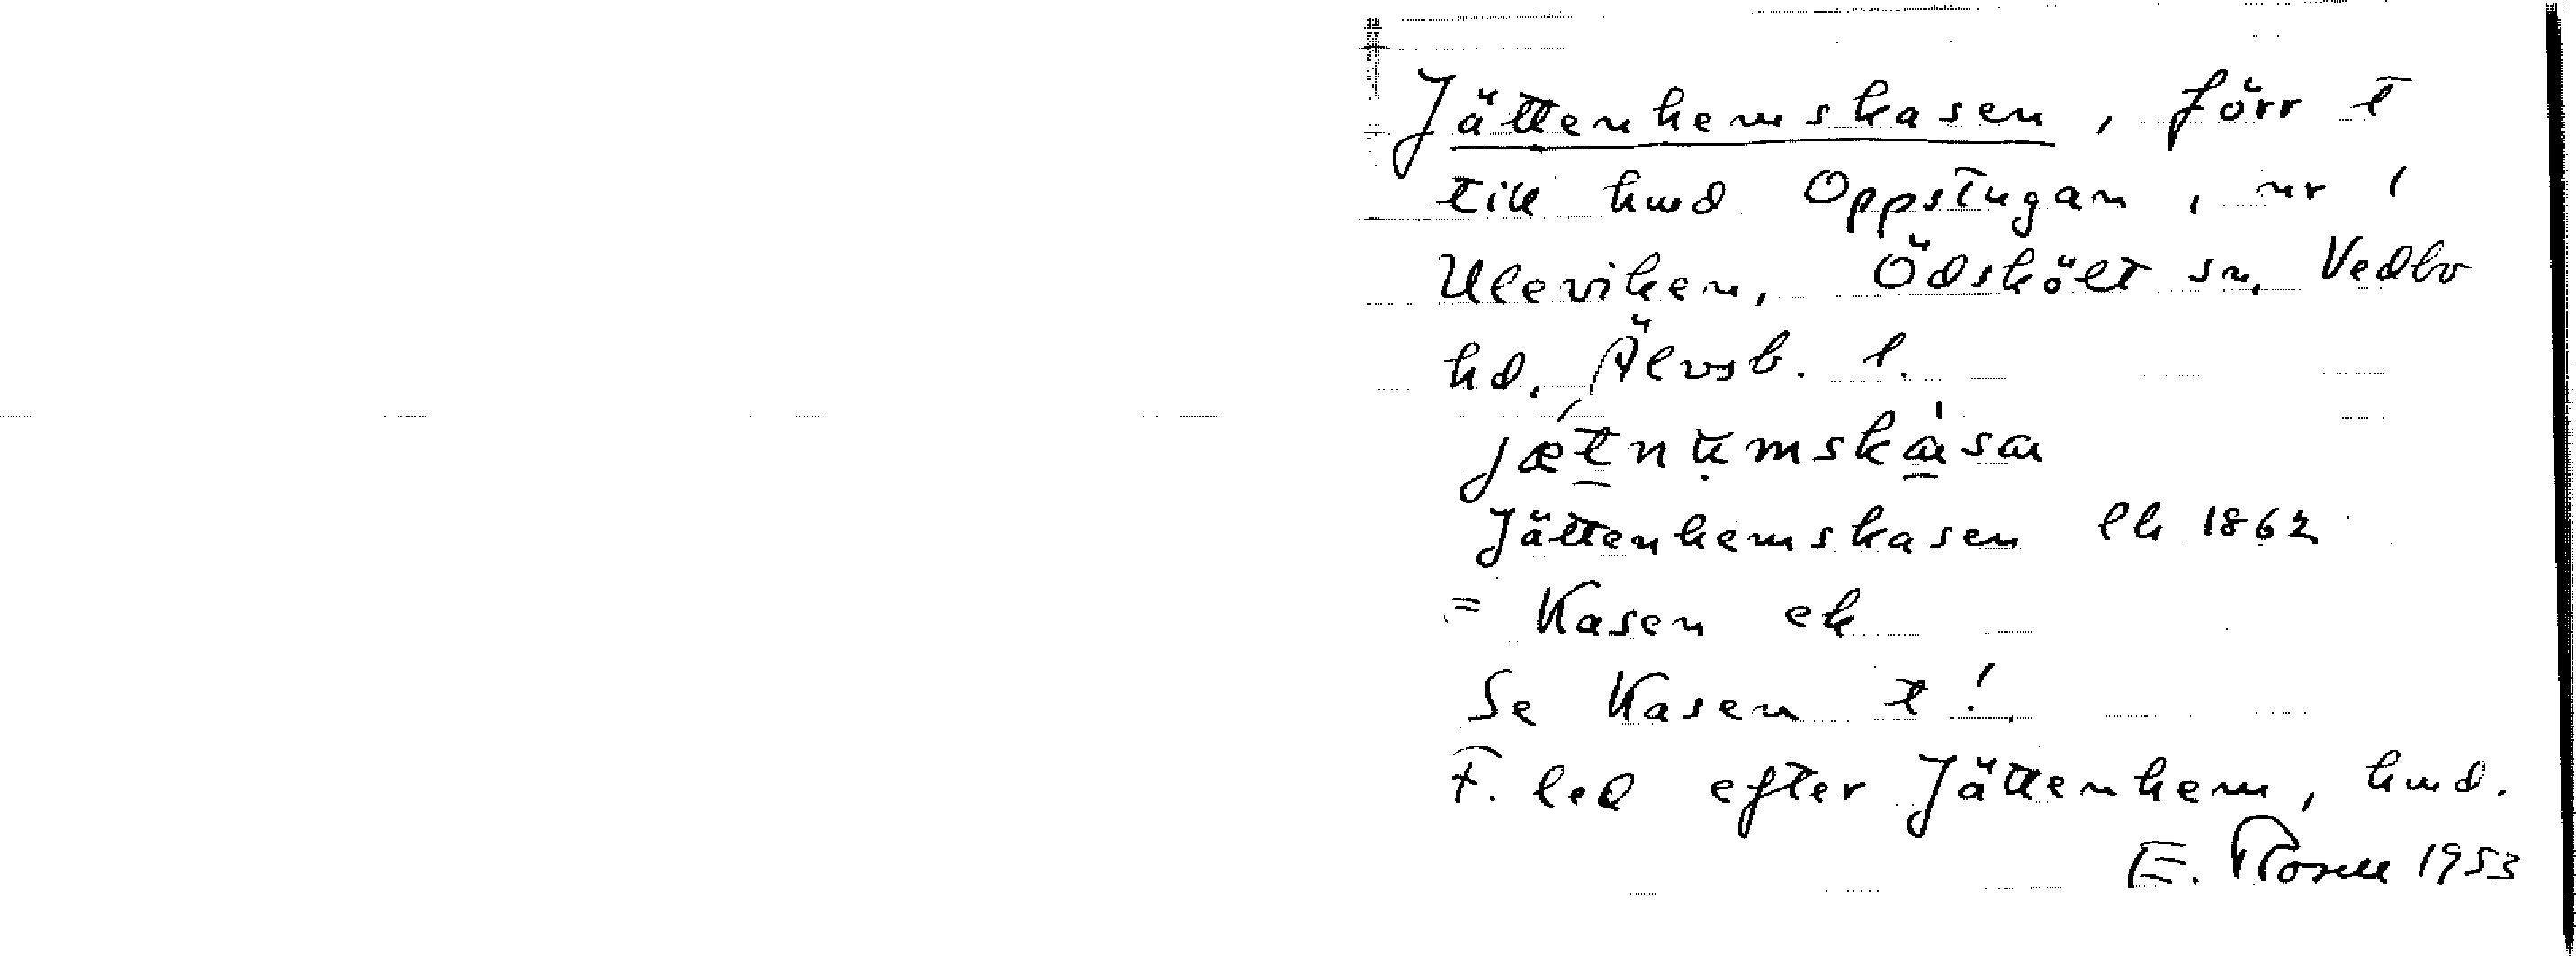 Jättenhemskasen, förr t
till hmd Oppstugan, nr 1
Uleviken, Ödskölt sn, Vedbo
hd, Älvsb. l.
Jättenhemskasen lh 1862
= Kasen ek
Se Kasen t!
F. led efter Jättenhem, hmd.
E. Rosell 1953